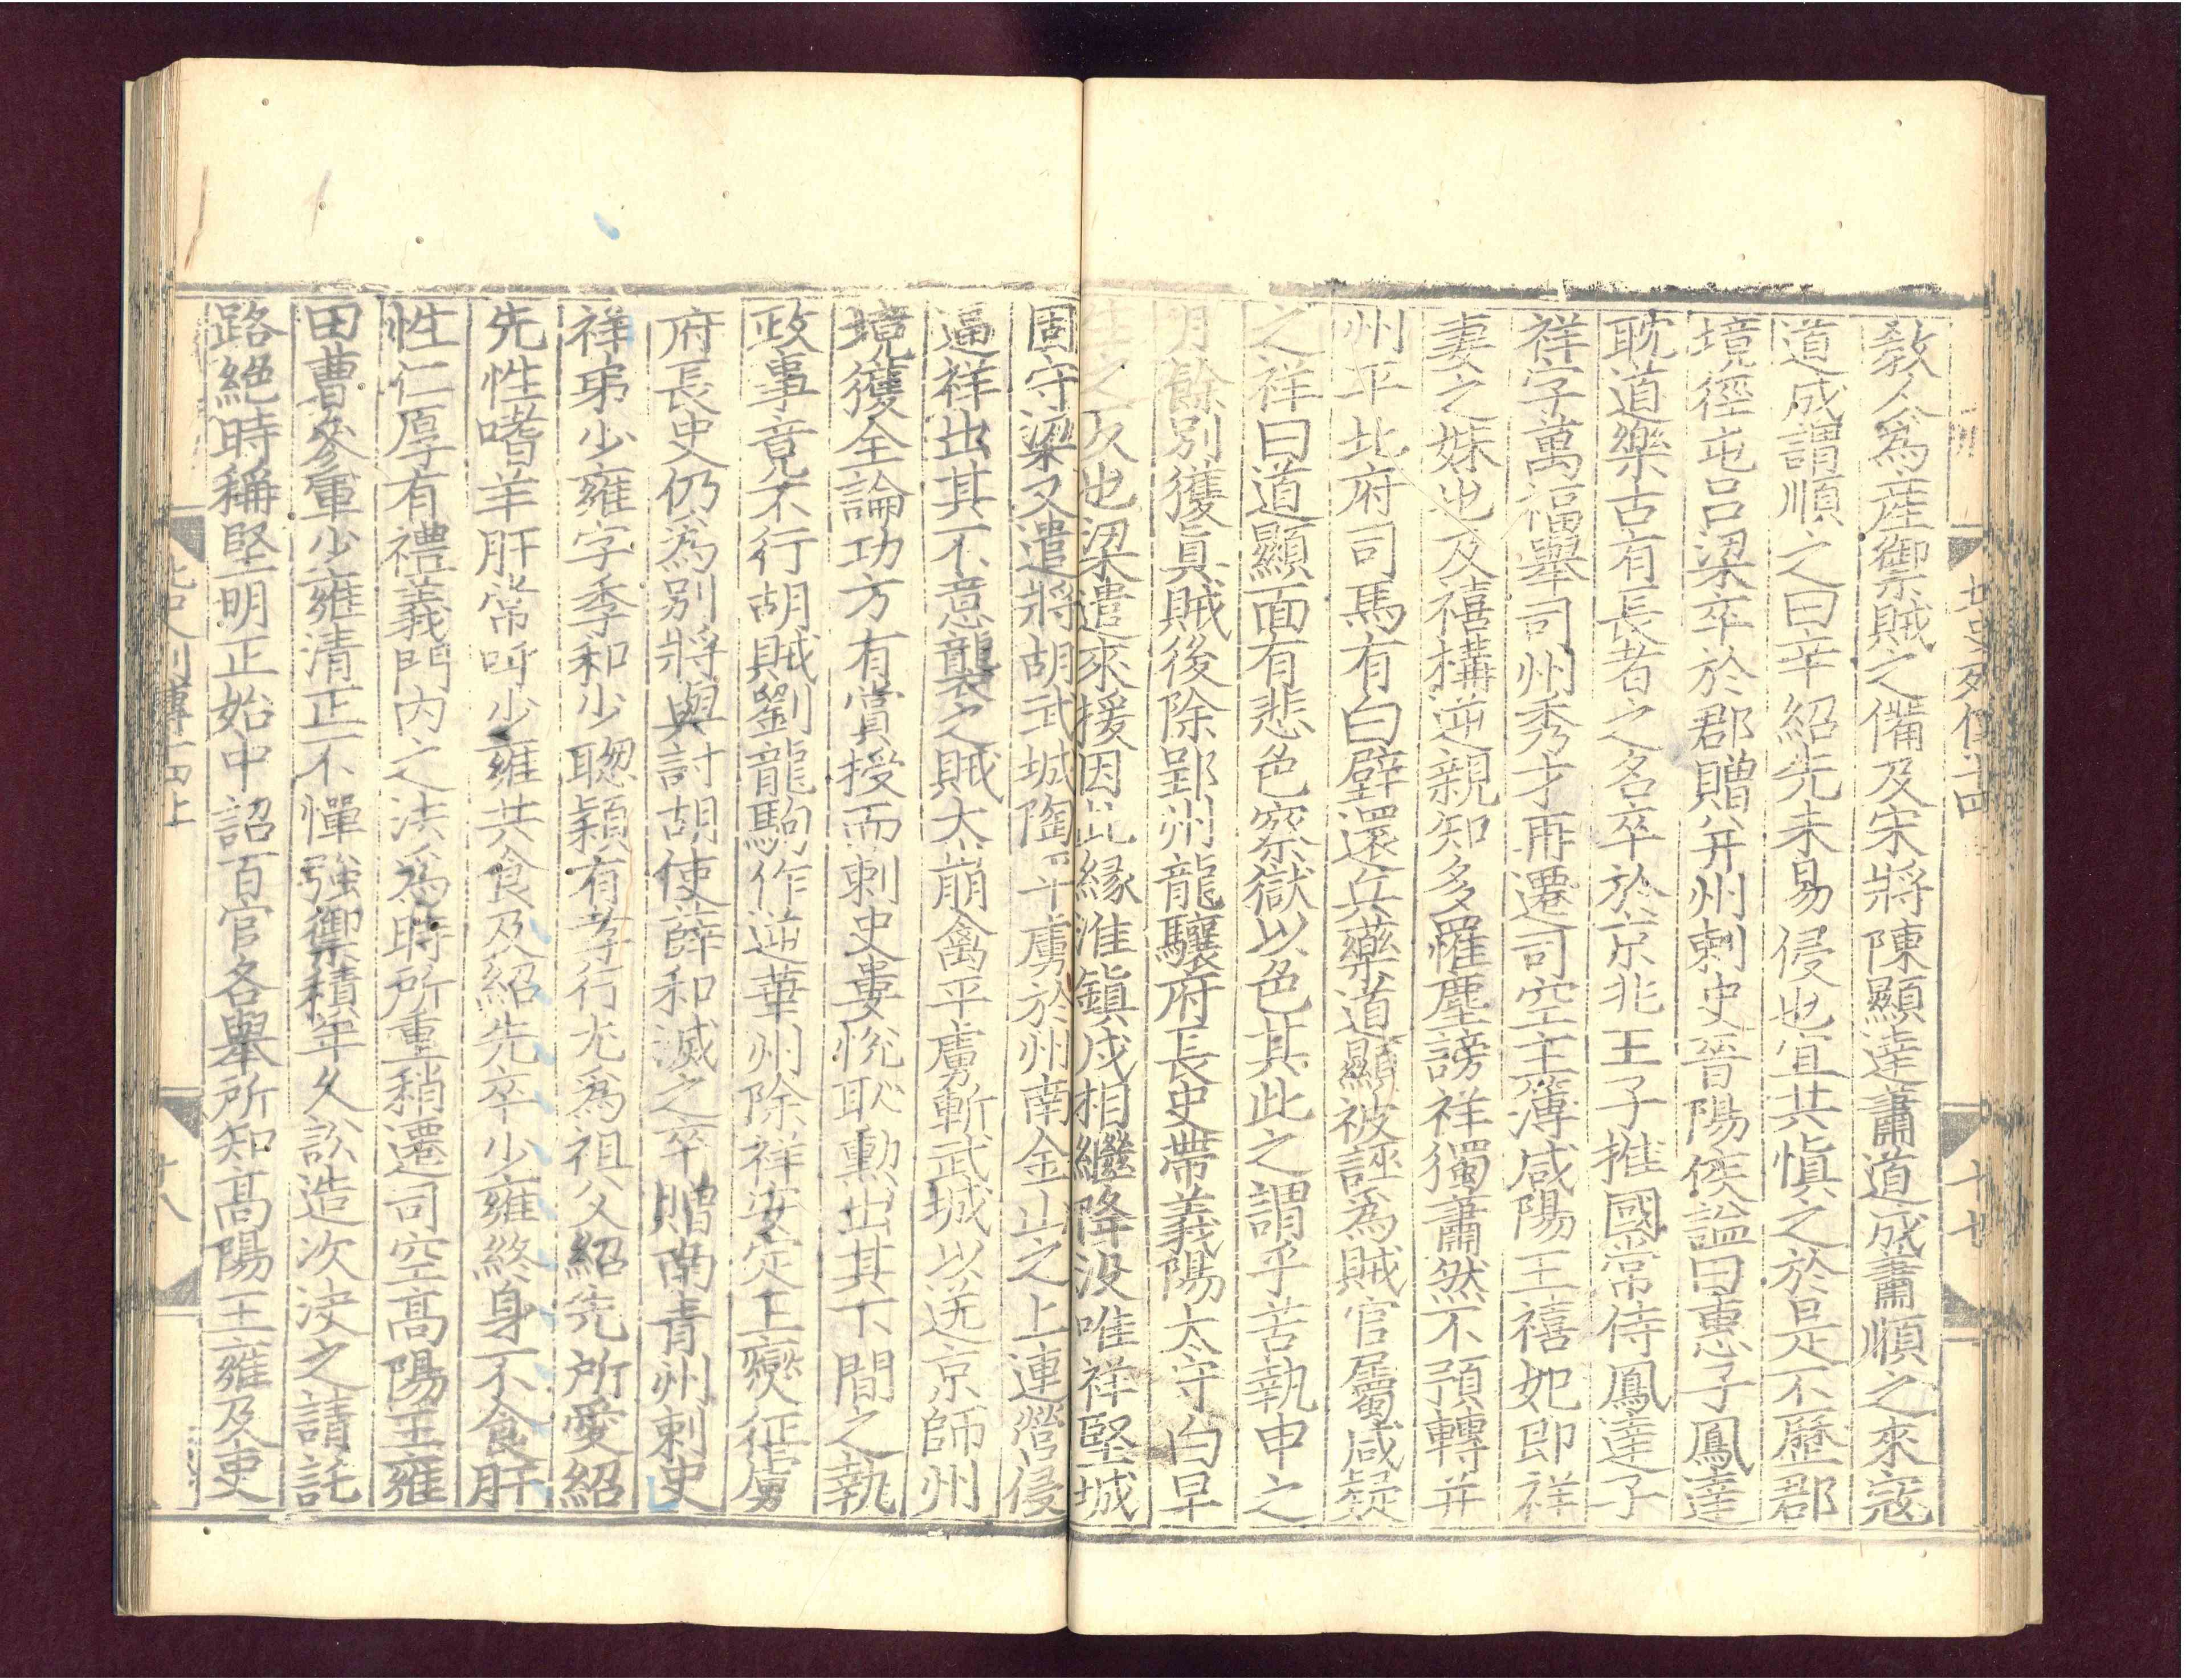 敎人爲産禦賊之備及宋將陳顯達蕭道成蕭順之來寇
道成謂順之曰辛紹先未易侵也宜共愼之於是不歷郡
境徑屯呂梁卒於郡贈并州刺史晉陽侯謚曰惠子鳳達
耽道樂古有長者之名卒於京兆王子推國常侍鳳達子
祥字萬福舉司州秀才再遷司空主簿咸陽王禧妃即祥
妻之妹也及禧構逆親知多罹塵謗祥獨蕭然不預轉并
州平北府司馬有白壁還兵藥道顯被誣爲賊官屬咸疑
之祥曰道顯面有悲色察獄以色其此之謂乎苦執申之
月餘別獲眞賊後除郢州龍驤府長史帶義陽太守白早
之久也梁遣來援因此縁淮鎭戍相繼降沒唯祥堅城
固守梁又遣將胡武城陶平虜於州南金山之上連營侵
逼祥出其不意襲之賊大崩禽平虜斬武城以送京師州
境獲全論功方有賞授而刺史婁悅耻勳出其下間之執
政事竟不行胡賊劉龍駒作逆華州除祥安定王燮征虜
府長史仍爲別將與討胡使薛和滅之卒贈南青州刺史
祥弟少雍字季和少聰穎有孝行尤爲祖父紹先所愛紹
先性嗜羊肝常呼少雍共食及紹先卒少雍終身不食肝
性仁厚有禮義門内之法爲時所重稍遷司空高陽王雍
田曹參軍少雍清正不憚強禦積年久訟造次決之請託
路絕時稱堅明正始中詔百官各舉所知高陽王雍及吏
北史列傳十四上
十八
十七